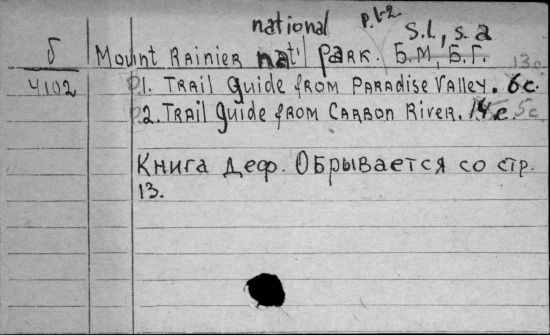 national p.1-2 s.l., s.a
б Mount Rainier nat'l park. Б.М, Б.Г. 13c.
4102 1. Trail Guide from Paradise Valley. 6c.
2. Trail guide from Carbon River. 14c. 5c
Книга деф. Обрывается со стр.
13.